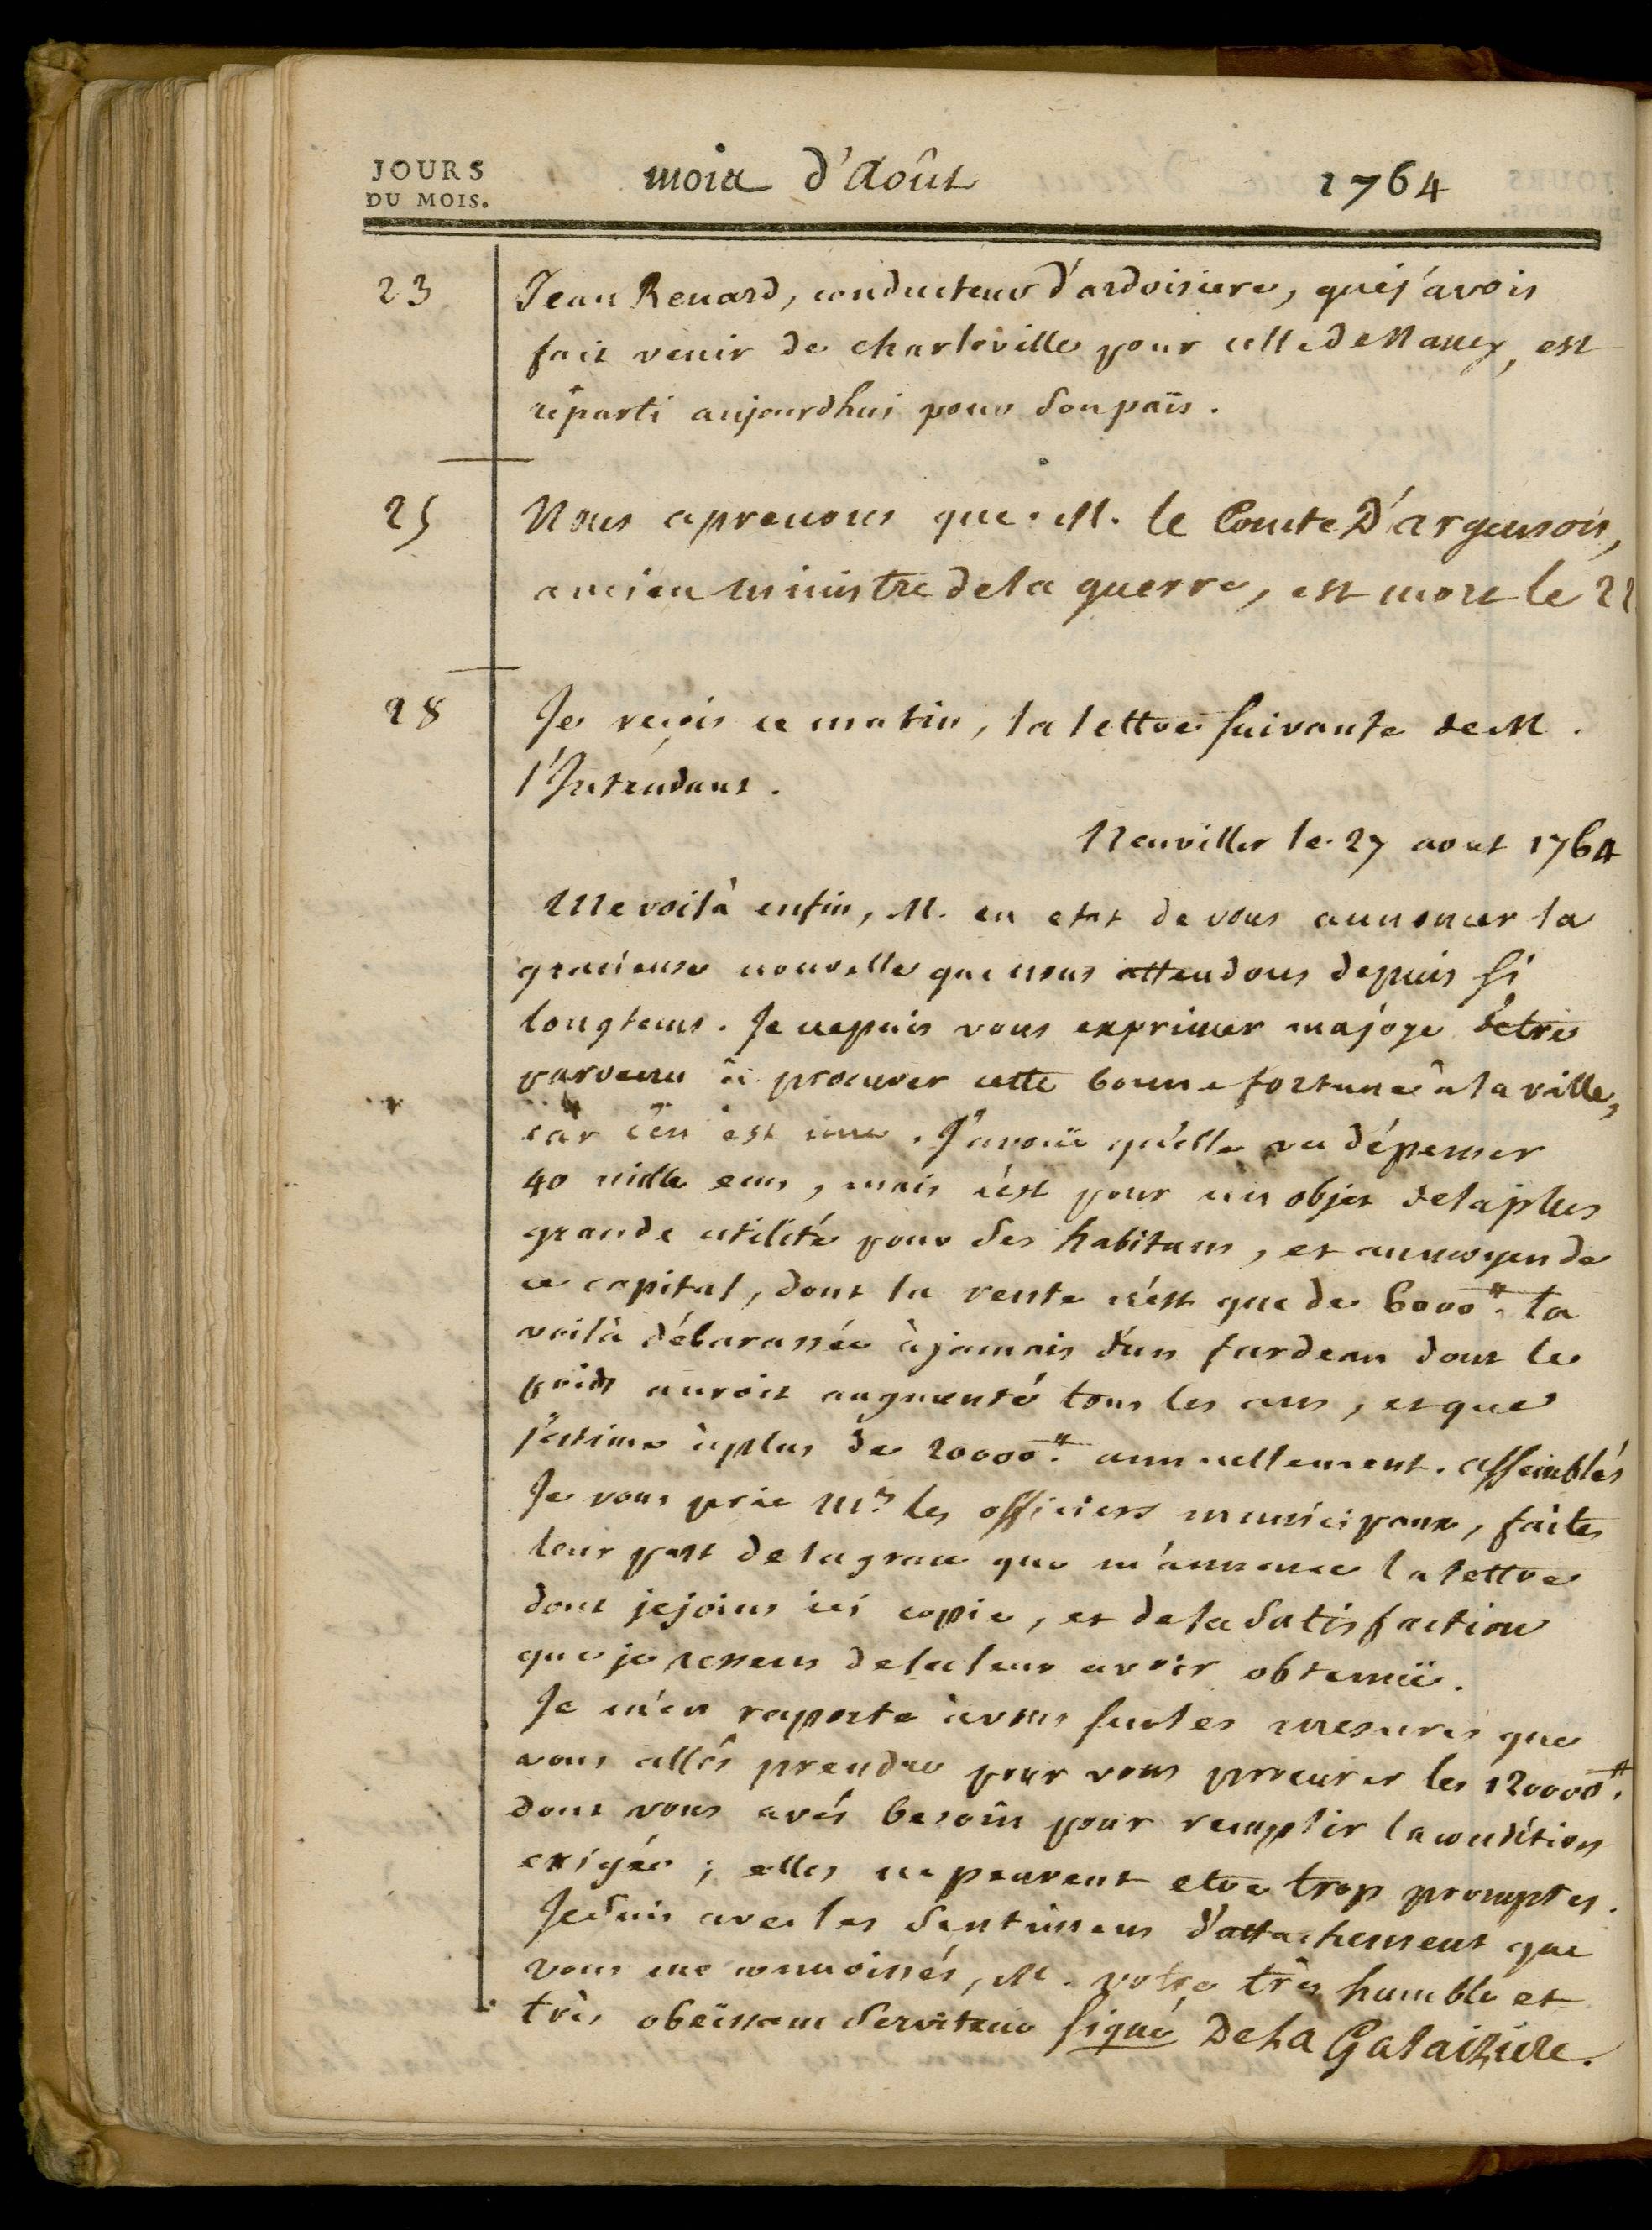 JOURS
DU MOIS.
mois d'Août 1764
23 Jean Renard, conducteur d'ardoisiere, que j'avois
fait venir de charleville pour celle de Nancy, est
réparti aujourdhui pour son païs.
25 Nous aprenons que M. le Comte D'argenson,
ancien ministre de la guerre, est mort le 22
28 Je reçois ce matin, la lettre suivante de M.
l'Intendant.
Neuviller le 27 aout 1764
Me voilà enfin, M. en etat de vous annoncer la
gracieuse nouvelle que nous attendons depuis si
longtems. Je ne puis vous exprimer ma joye d'etre
parvenu à procurer cette bonne fortune à la ville,
car c'en est une. J'avoüe qu'elle va dépenser
40 mille ecus, mais c'est pour un objet de la plus
grande utilité pour ses habitans, et au moyen de
ce capital, dont la rente n'est que de 6000# la
voilà débarassée à jamais d'un fardeau dont le
poids auroit augmenté tous les ans, et que
j'estime à plus de 20000# annuellement. assemblés
Je vous prie Mrs les officiers municipaux, faites
leur part de la grace que m'annonce la lettre
dont je joins ici copie, et de la satisfaction
que je ressens de la leur avoir obtenüe.
Je m'en raporte à vous sur les mesures que
vous allés prendre pour vous procurer les 120000#
dont vous avés besoin pour remplir la condition
exigée ; elles ne peuvent etre trop promptes.
Je suis avec les sentimens d'attachement que
vous me connoissés, M. votre très humble et
très obeïssant serviteur signé De La Galaiziere.